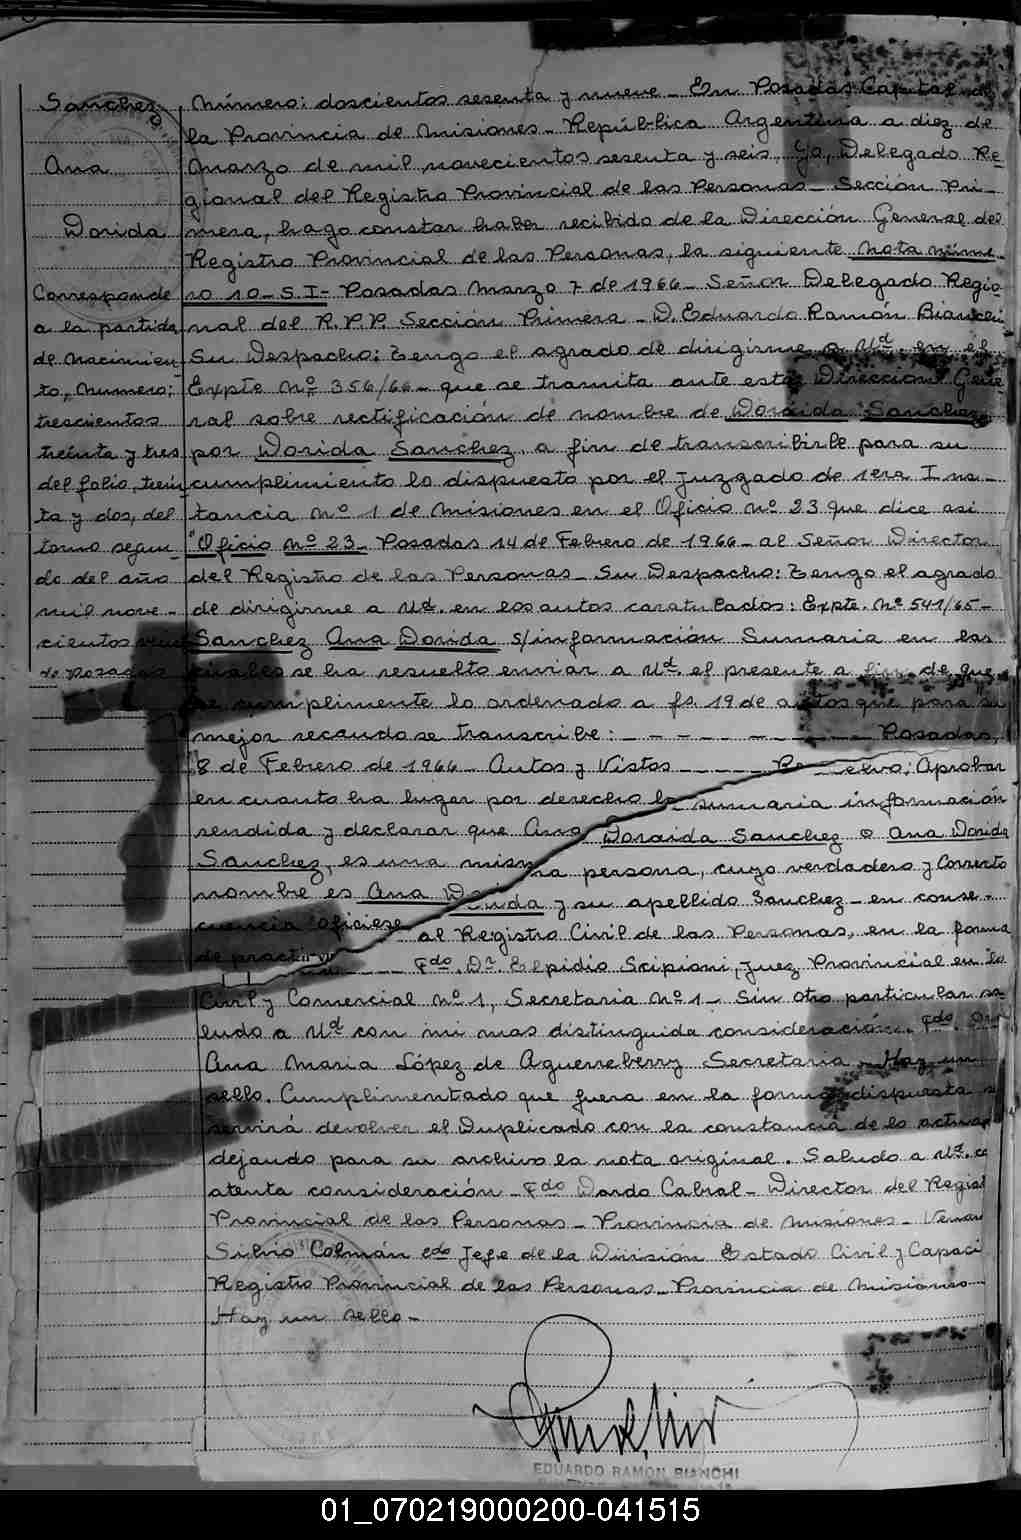 Sanchez,
Ana
Dorida
Corresponde
a la partida
de Nacimien-
to, Numero:
trescientos
treinta y tres
del folio, trein-
ta y dos, del
tomo segun-
do del año
mil nove-
cientos
Posadas
Número: doscientos sesenta y nueve - En Posadas Capital de
la Provincia de Misiones - República Argentina a diez de
Marzo de mil novecientos sesenta y seis, Yo, Delegado Re-
gional del Registro Provincial de las Personas - Sección Pri-
mera, hago constar haber recibido de la Dirección General del
Registro Provincial de las Personas, la siguiente nota núme-
ro 10 - S.I - Posadas Marzo 7 de 1966 - Señor Delegado Regio-
nal del R.P.P. Sección Primera - D. Eduardo Ramón Bianchi
Su Despacho: Tengo el agrado de dirigirme a Ud. en el
Expte Nº 356/66 - que se tramita ante esta Dirección Gene-
ral sobre rectificación de nombre de Doraida Sanchez
por Dorida Sanchez, a fin de transcribirle para su
cumplimiento lo dispuesto por el Juzgado de 1era Ins-
tancia Nº 1 de Misiones en el Oficio nº 23 que dice asi
"Oficio nº 23 - Posadas 14 de Febrero de 1966 - al Señor Director
del Registro de las Personas - Su Despacho: Tengo el agrado
de dirigirme a Ud. en los autos caratulados: Expte. Nº 541/65 -
Sanchez Ana Dorida s/información Sumaria en las
cuales se ha resuelto enviar a Ud. el presente a fin de que
se cumplimente lo ordenado a fs. 19 de autos que para su
mejor recaudo se transcribe: - - - - - - - - Posadas,
8 de Febrero de 1966 - Autos y Vistos - - - - Resuelvo: Aprobar
en cuanto ha lugar por derecho la sumaria información
rendida y declarar que Ana Doraida Sanchez o Ana Dorida
Sanchez, es una misma persona, cuyo verdadero y correcto
nombre es Ana Dorida y su apellido Sanchez - en conse-
cuencia oficiese al Registro Civil de las Personas, en la forma
de - - - Fdo. Dr. Elpidio Scipioni, Juez Provincial en lo
Civil y Comercial nº 1, Secretaria Nº 1 - Sin otro particular sa-
ludo a Ud con mi mas distinguida consideración. Fdo.
Ana Maria López de Aguerreberry Secretaria - Hay un
sello. Cumplimentado que fuera en la forma dispuesta
servirá devolver el Duplicado con la constancia de lo
dejando para su archivo la nota original. Saludo a Ud.
atenta consideración - Fdo Dardo Cabral - Director del
Provincial de las Personas - Provincia de Misiones -
Silvio Colmán Jefe de la División Estado Civil y
Registro Provincial de las Personas - Provincia de Misiones -
Hay un sello -
EDUARDO RAMON BIANCHI
01_070219000200-041515